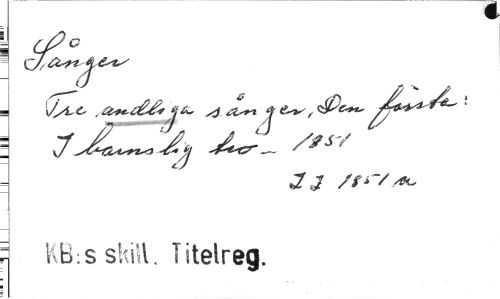 Sånger
Tre andliga sånger, Den första:
I barnslig tro – 1851
JJ 1851 a
KB:s skill. Titelreg.